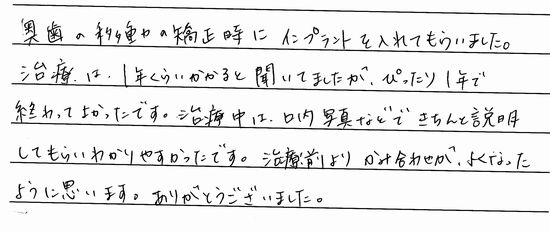 奥歯の移動の矯正時にインプラントを入れてもらいました。
治療は、1年くらいかかると聞いてましたが、ぴったり1年で
終わってよかったです。治療中は、口内写真などできちんと説明
してもらいわかりやすかったです。治療前よりかみ合わせが、よくなった
ように思います。ありがとうございました。